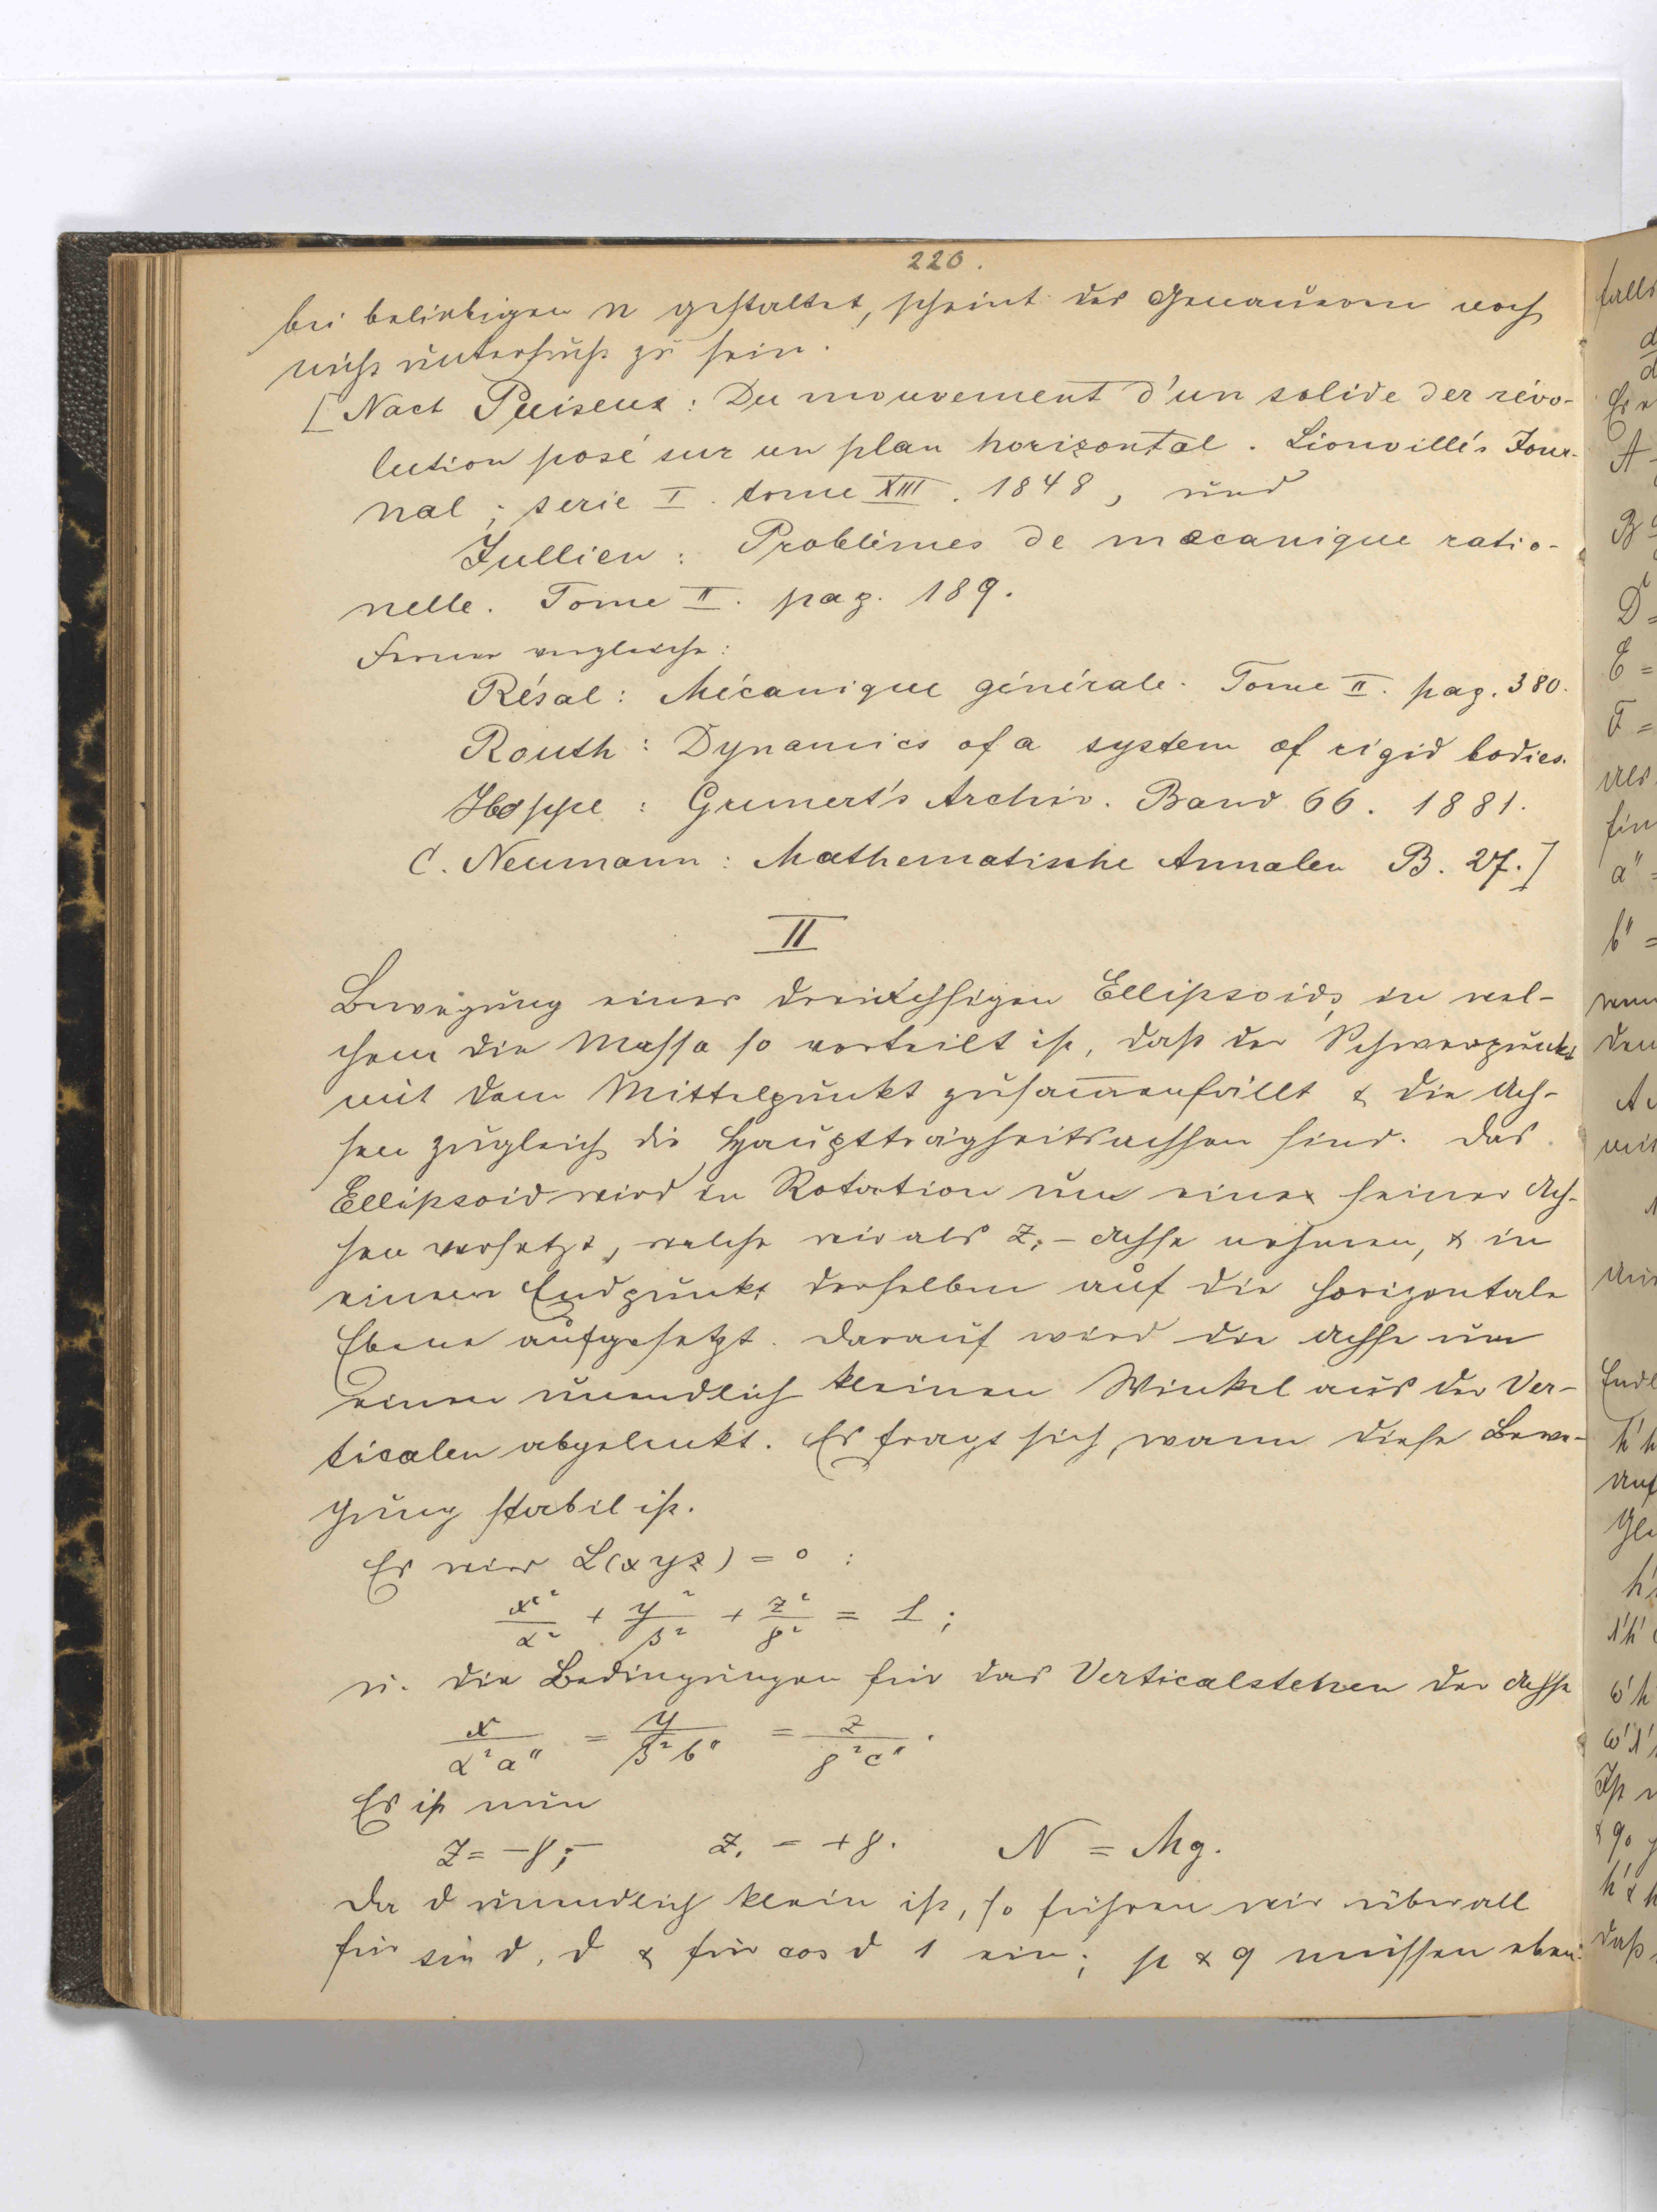 220.
bei beliebigen n gestaltet, scheint des Genaueren noch
nicht untersucht zu sein.
[Nach Puiseux: Du mouvement d'un solide der révo-
lution posé sur un plan horizontal. Liouville's Jour-
nal; serie I. tome XIII. 1848, und
Jullien: Problèmes de mecanique ratio-
nelle. Tome II. pag. 189.
Ferner vergleiche:
Résal: Mécanique générale. Tome II. pag. 380.
Routh: Dynamics of a system of rigid bodies.
Hoppe: Grunert's Archiv. Band 66. 1881.
C. Neumann: Mathematische Annalen B. 27.]
II
Bewegung eines dreiachsigen Ellipsoids, in wel-
chem die Masse so verteilt ist, daß der Schwerpunkt
mit dem Mittelpunkt zusam̅enfällt & die Ach-
sen zugleich die Hauptträgheitsachsen sind. Das
Ellipsoid wird in Rotation um eine seiner Ach-
sen versetzt, welche wir als z,-Achse nehmen, & in
einem Endpunkt derselben auf die horizontale
Ebene aufgesetzt. Darauf wird die Achse um
einen unendlich kleinen Winkel aus der Ver-
ticalen abgelenkt. Es fragt sich, wann diese Bewe-
gung stabil ist.
Es wird L(xyz) = 0:
x²/α² + y²/β² + z²/ρ² = 1;
u. die Bedingungen für das Verticalstehen der Achse
x/α²a" = y/β²b" = z/ρ²c".
Es ist nun
z = -ρ; z, = +ρ. N = Mg.
Da ϑ unendlich klein ist, so führen wir überall
für sin ϑ, ϑ & für cos ϑ 1 ein; p & q müssen eben-
falls
A
D =
E =
F =
a" =
b" =
Endl
daß